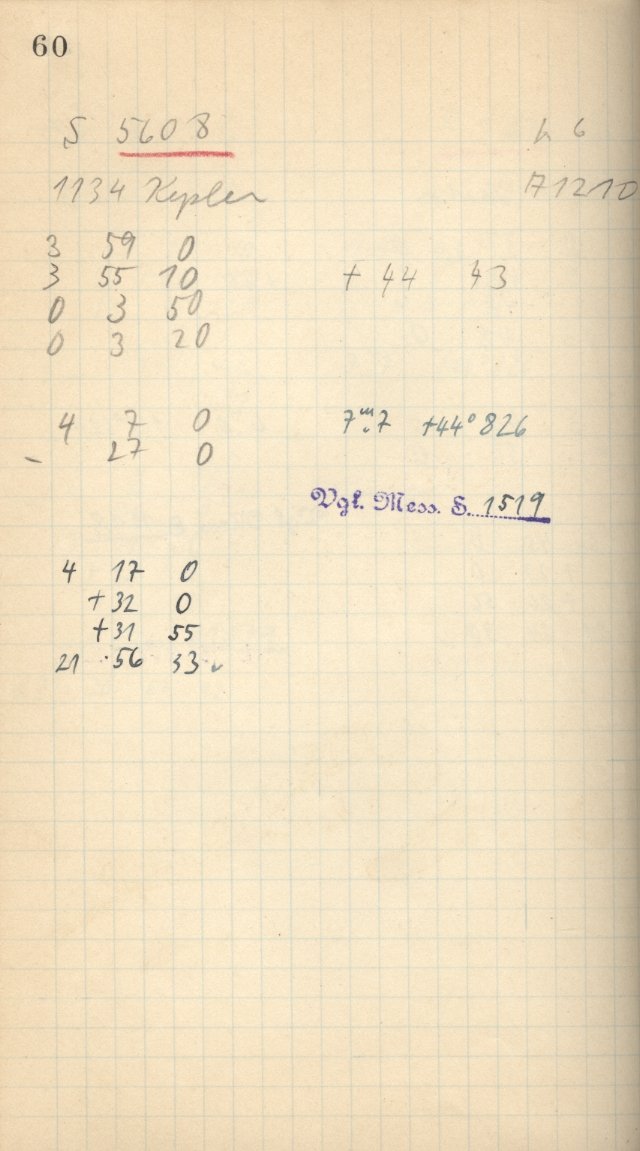 60
S 5608 h 6
1134 Kepler A1210
3 59 0
3 55 10 + 44 43
0 3 50
0 3 20
4 7 0 7ᵐ.7 +44° 826
- 27 0
Vgl. Mess. S. 1519
4 17 0
+32 0
+31 55
21 56 33